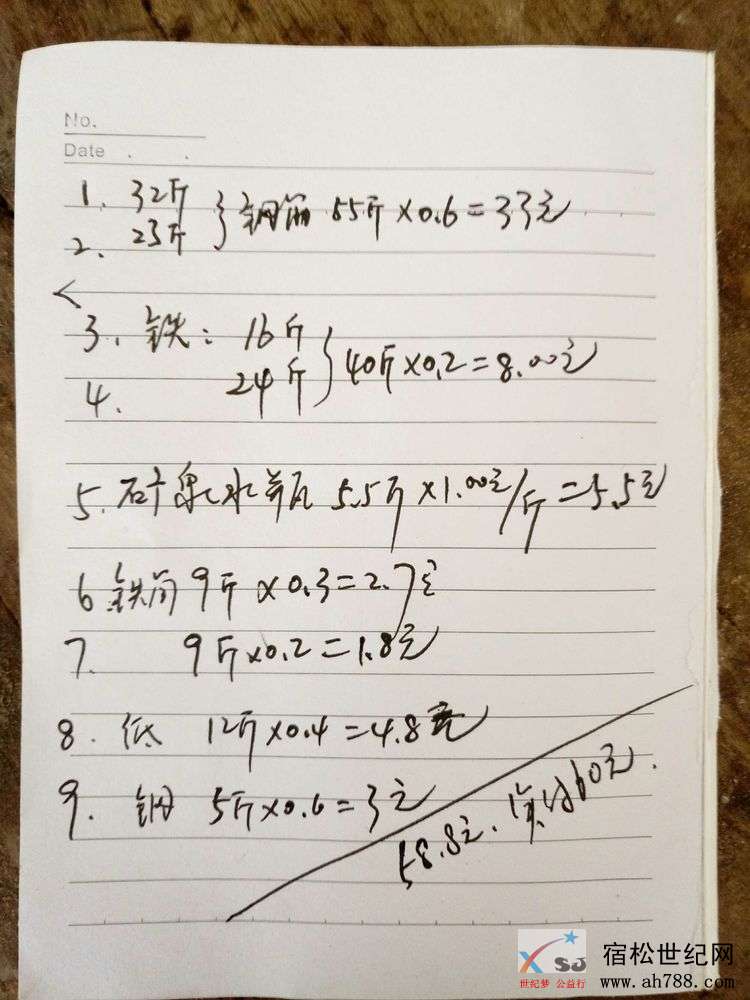 No.
Date . .
1. 32斤
2. 23斤 } 钢筋 55斤×0.6=33元
3. 铁: 16斤
4. 24斤 } 40斤×0.2=8.00元
5. 矿泉水瓶 5.5斤×1.00元/斤=5.5元
6 铁筒 9斤×0.3=2.7元
7. 9斤×0.2=1.8元
8. 低 12斤×0.4=4.8元
9. 钢 5斤×0.6=3元
58.8元. 实付60元.
XSJ
世纪梦 公益行
宿松世纪网
www.ah788.com